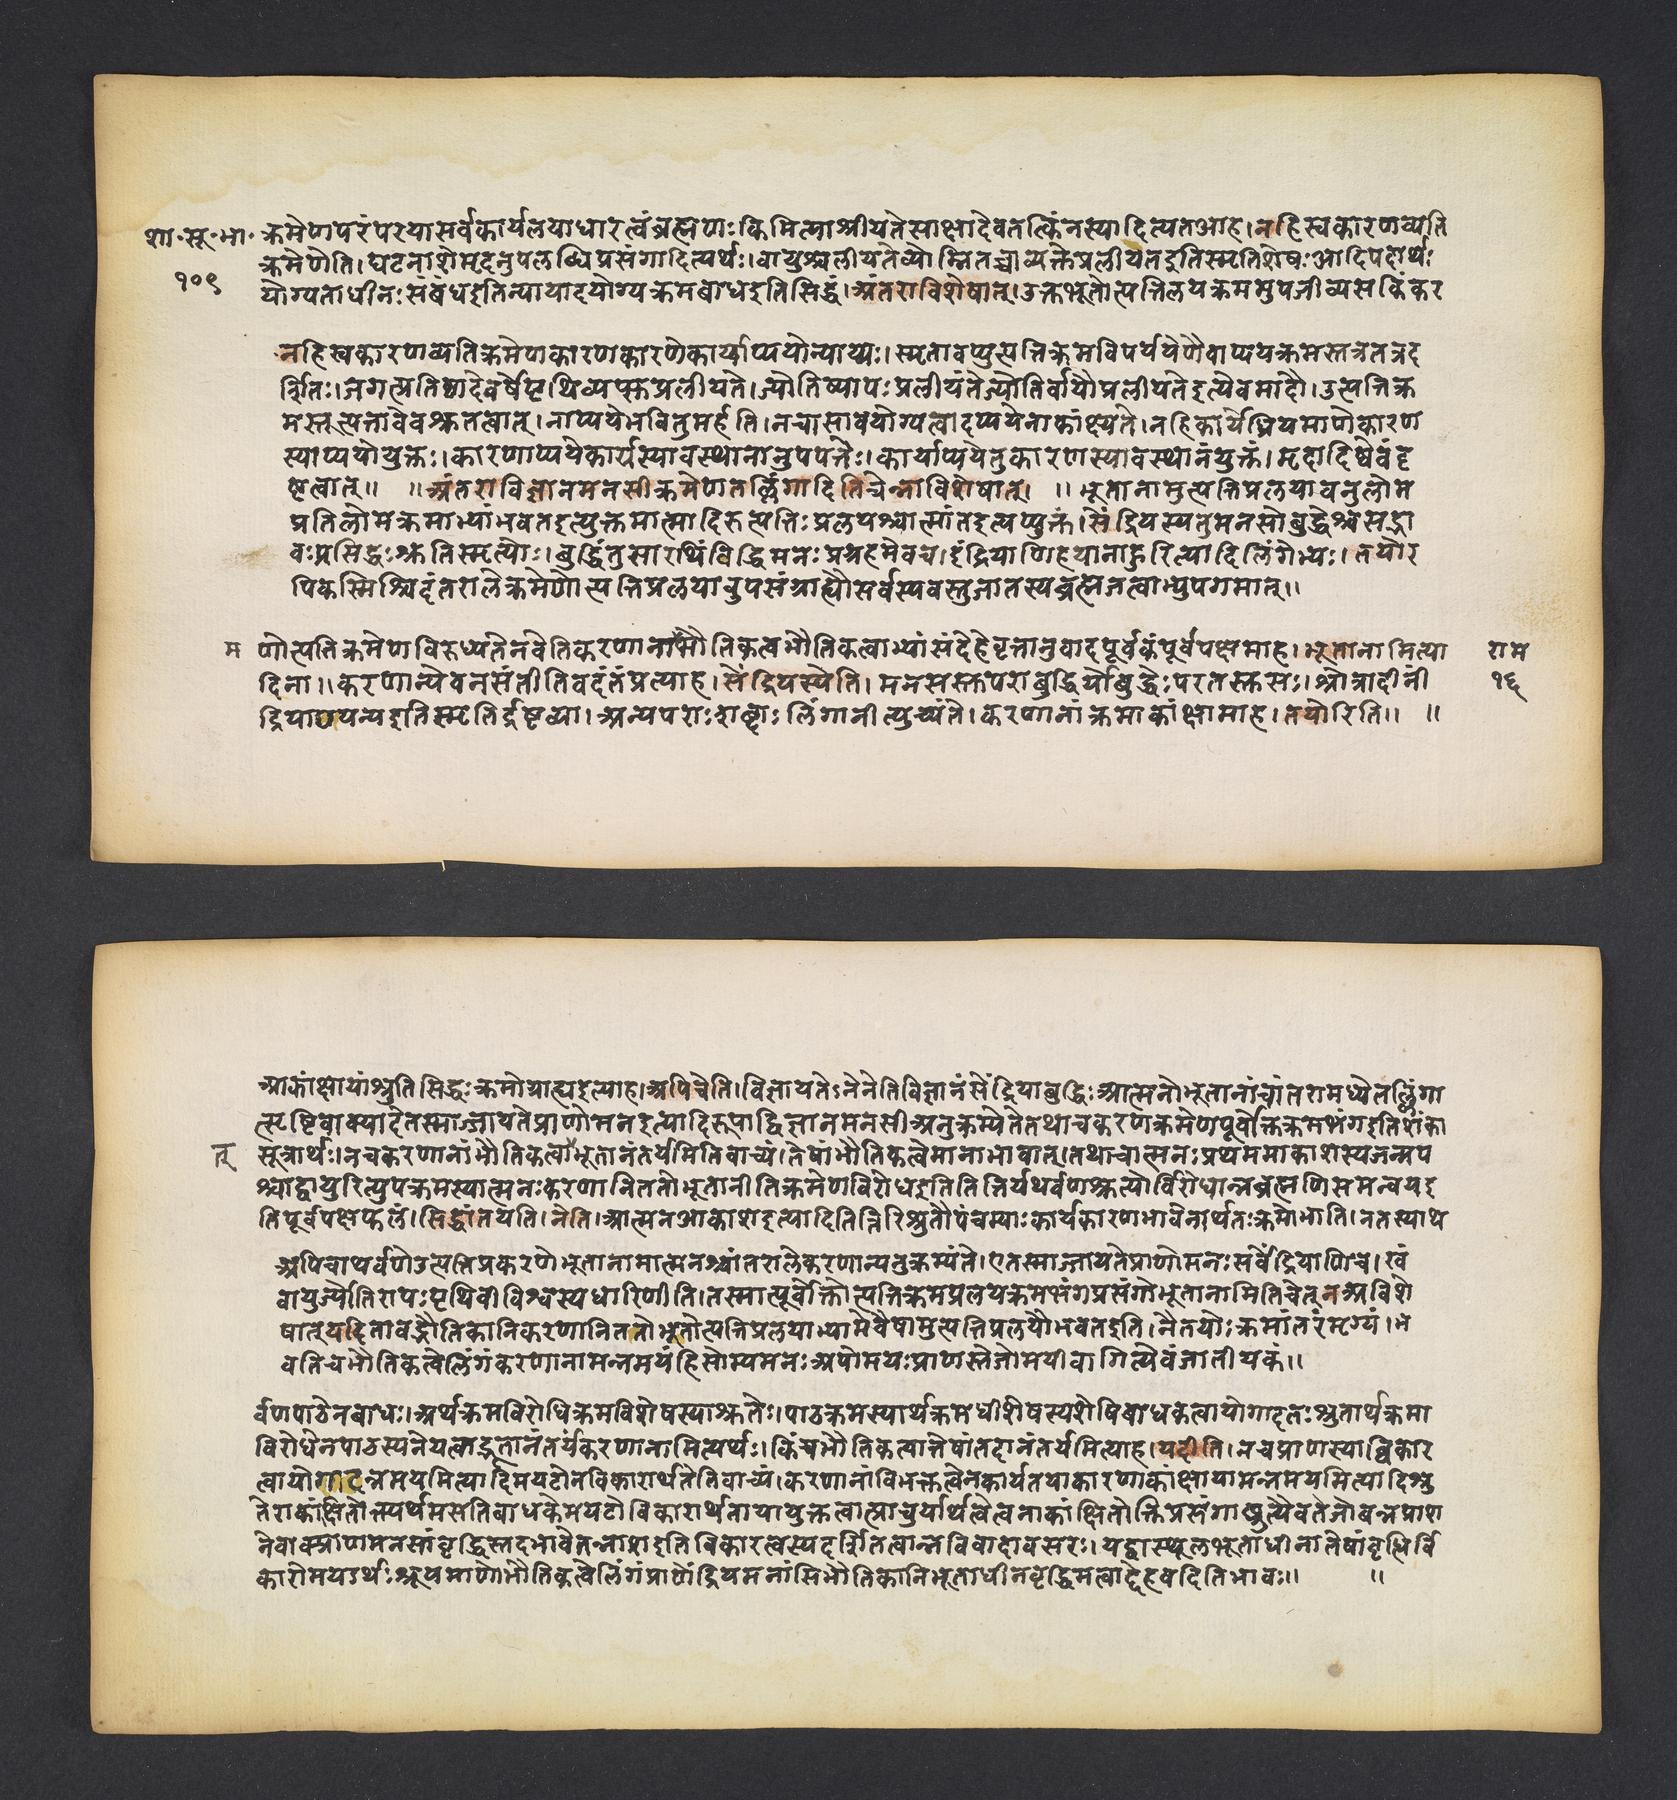 शा॰सू॰भा॰ क्रमेणपरंपरयासर्वकार्यलयाधारत्वंब्रह्मणः किमित्याश्रीयतेसाक्षादेवतत्किंनस्यादित्यतआह।नहिस्वकारणव्यति
१०९ क्रमेणेति।घटनाशेमृदनुपलब्धिप्रसंगादित्यर्थः।वायुश्चलीयतेव्योम्नितच्चाव्यक्तेप्रलीयतेइतिस्मृतिशेषःआदिपदार्थः
योग्यताधीनःसंबंधइतिन्यायादयोग्यक्रमबाधइतिसिद्धं।अंतराविशेषात्।उक्तभूतोत्पत्तिलयक्रममुपजीव्यसकिंकर
नहिस्वकारणव्यतिक्रमेणकारणकारणेकार्याप्ययोन्याय्यः।स्मृतावप्युत्पत्तिक्रमविपर्ययेणैवाप्ययक्रमस्तत्रतत्रद
र्शितः।जगत्प्रतिष्ठादेवर्षेपृथिव्यप्सुप्रलीयते।ज्योतिष्यापःप्रलीयंतेज्योतिर्वायौप्रलीयतेइत्येवमादौ।उत्पत्तिक्र
मस्तूत्पत्तावेवश्रुतत्वात्।नाप्ययेभवितुमर्हति।नचासावयोग्यत्वादप्ययेनाकांक्ष्यते।नहिकार्येध्रियमाणेकारण
स्याप्ययोयुक्तः।कारणाप्ययेकार्यस्यावस्थानानुपपत्तेः।कार्याप्ययेतुकारणस्यावस्थानंयुक्तं।मृदादिष्वेवंदृ
ष्टत्वात्॥ ॥अंतराविज्ञानमनसीक्रमेणतल्लिंगादितिचेन्नाविशेषात्। ॥भूतानामुत्पत्तिप्रलयावनुलोम
प्रतिलोमक्रमाभ्यांभवतइत्युक्तमात्मादिरुत्पत्तिःप्रलयश्चात्मांतइत्यप्युक्तं।सेंद्रियस्यतुमनसोबुद्धेश्चसद्भा
वःप्रसिद्धःश्रुतिस्मृत्योः।बुद्धिंतुसारथिंविद्धिमनःप्रग्रहमेवच।इंद्रियाणिहयानाहुरित्यादिलिंगेभ्यः।तयोर
पिकस्मिंश्चिदंतरालेक्रमेणोत्पत्तिप्रलयावुपसंग्राह्यौसर्वस्यवस्तुजातस्यब्रह्मजत्वाभ्युपगमात्॥
म णोत्पतिक्रमेणविरुध्यतेनवेतिकरणानाभौतिकत्वभौतिकत्वाभ्यांसंदेहेवृत्तानुवादपूर्वकंपूर्वपक्षमाह।भूतानामित्या राम
दिना॥करणान्येवनसंतीतिवदंतंप्रत्याह।सेंद्रियस्येति।मनसस्तुपराबुद्धिर्योबुद्धेःपरतस्तुसः।श्रोत्रादीनीं १६
द्रियाण्यन्यइतिस्मृतिर्द्रष्टव्या।अन्यपराःशब्दाःलिंगानीत्युच्यंते।करणानांक्रमाकांक्षामाह।तयोरिति॥ ॥
आकांक्षायांश्रुतिसिद्धःक्रमोग्राह्यइत्याह।अपिचेति।विज्ञायतेऽनेनेतिविज्ञानंसेंद्रियाबुद्धिःआत्मनोभूतानांचांतरामध्येतल्लिंगा
त्सृष्टिवाक्यादेतस्माज्जायतेप्राणोमनइत्यादिरूपाद्विज्ञानमनसीअनुक्रम्येतेतथाचकरणक्रमेणपूर्वोक्तक्रमभंगइतिशंका
त् सूत्रार्थः।नचकरणानांभौतिकत्वाभूतानंतर्यमितिवाच्यं।तेषांभौतिकत्वेमानाभावात्।तथाचात्मनःप्रथममाकाशस्यजन्मप
श्चाद्वायुरित्युपक्रमस्यात्मनःकरणानिततोभूतानीतिक्रमेणविरोधइतितित्तिर्यथर्वणश्रुत्योर्विरोधान्नब्रह्मणिसमन्वयइ
तिपूर्वपक्षफलं।सिद्धांतयति।नेति।आत्मनआकाशइत्यादितित्तिरिश्रुतौपंचम्याःकार्यकारणभावेनार्थतःक्रमोभाति।नतस्याथ
अपिचाथर्वणेउत्पत्तिप्रकरणेभूतानामात्मनश्चांतरालेकरणान्यनुक्रम्यंते।एतस्माज्जायतेप्राणोमनःसर्वेंद्रियाणिच।खं
वायुर्ज्योतिरापःपृथिवीविश्वस्यधारिणीति।तस्मात्पूर्वोक्तोत्पत्तिक्रमप्रलयक्रमभंगप्रसंगोभूतानामितिचेत्नअविशे
षात्यदितावद्भौतिकानिकरणानिततोभूतोत्पत्तिप्रलयाभ्यामेवैषामुत्पत्तिप्रलयौभवतइति।नैतयोःक्रमांतरंमृग्यं।भ
वतिचभौतिकत्वेलिंगंकरणानामन्नमयंहिसोम्यमनःअपोमयःप्राणस्तेजोमयीवागित्येवंजातीयकं॥
र्वणपाठेनबाधः।अर्थक्रमविरोधिक्रमविशेषस्याश्रुतेः।पाठक्रमस्यार्थक्रमधीशेषस्यशेषिबाधकत्वायोगादतःश्रुतार्थक्रमा
विरोधेनपाठस्यनेयत्वाद्भूतानंतर्यंकरणानामित्यर्थः।किंचभौतिकत्वात्तेषांतदानंतर्यमित्याह।यदीति।नचप्राणस्याब्विकार
त्वायोगादन्नमयमित्यादिमयटोनविकारार्थतेतिवाच्यं।करणानांविभक्तत्वेनकार्यतयाकारणाकांक्षायामन्नमयमित्यादिश्रु
तेराकांक्षितोक्त्यर्थमसतिबाधकेमयटोविकारार्थतायायुक्तत्वात्प्राचुर्यार्थत्वेत्वनाकांक्षितोक्तिप्रसंगात्श्रुत्यैवतेजोबन्नप्राश
नेवाक्प्राणमनसांवृद्धिस्तदभावेतन्नाशइतिविकारत्वस्यदर्शितत्वान्नविवादावसरः।यद्वास्थूलभूताधीनातेषांवृद्धिर्वि
कारोमयडर्थःश्रूयमाणोभौतिकत्वेलिंगंप्राणेंद्रियमनांसिभौतिकानिभूताधीनवृद्धिमत्वाद्देहवदितिभावः॥ ॥